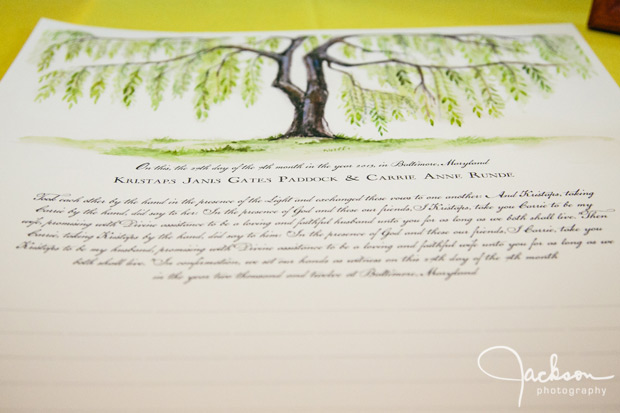 On this, the 29th day of the 9th month in the year 2012, in Baltimore, Maryland
KRISTAPS JANIS GATES PADDOCK & CARRIE ANNE RUNDE
Took each other by the hand in the presence of the Light and exchanged these vows to one another. And Kristaps, taking
Carrie by the hand, did say to her: "In the presence of God and these our friends, I Kristaps, take you Carrie to be my
wife, promising with Divine assistance to be a loving and faithful husband unto you for as long as we both shall live." Then
Carrie, taking Kristaps by the hand, did say to him: "In the presence of God and these our friends, I Carrie, take you
Kristaps to be my husband, promising with Divine assistance to be a loving and faithful wife unto you for as long as we
both shall live." In confirmation, we set our hands as witness on this 29th day of the 9th month
in the year two thousand and twelve at Baltimore, Maryland
Jackson
photography